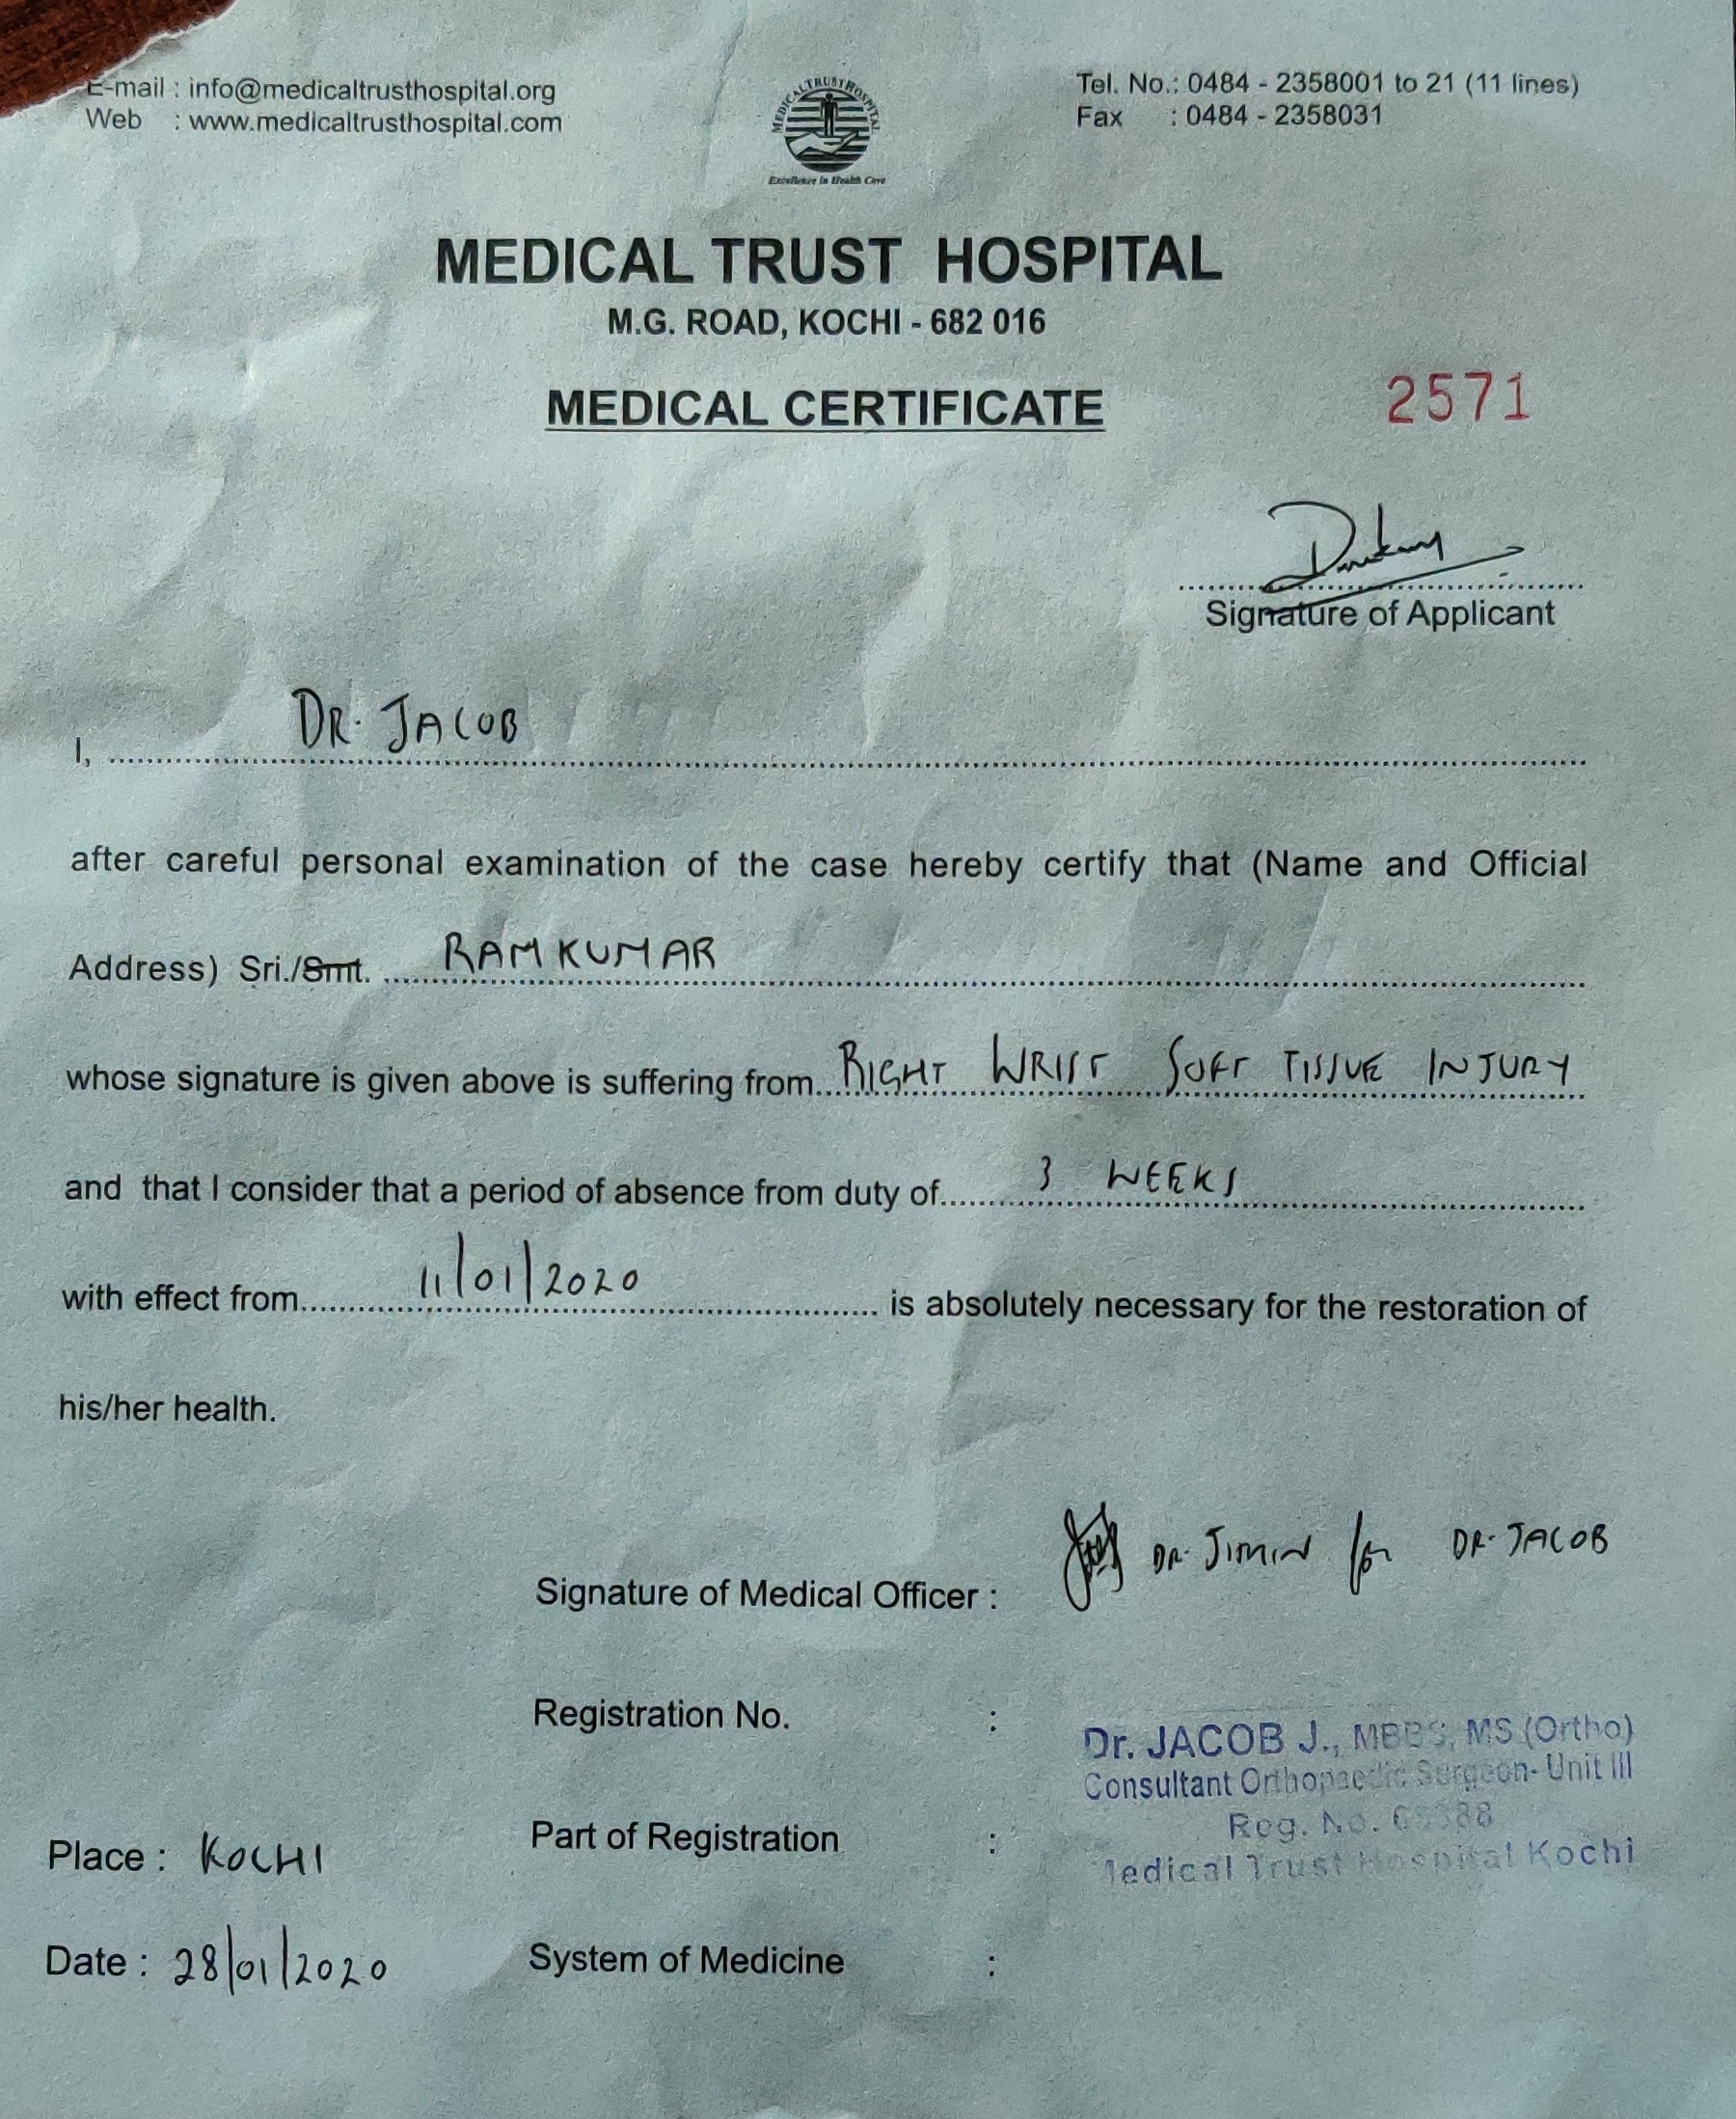 E-mail : info@medicaltrusthospital.org
Web : www.medicaltrusthospital.com
MEDICAL TRUST HOSPITAL
Excellence in Health Care
Tel. No.: 0484 - 2358001 to 21 (11 lines)
Fax : 0484 - 2358031
MEDICAL TRUST HOSPITAL
M.G. ROAD, KOCHI - 682 016
MEDICAL CERTIFICATE
2571
Signature of Applicant
I, DR. JACOB
after careful personal examination of the case hereby certify that (Name and Official
Address) Sri./Smt. RAMKUMAR
whose signature is given above is suffering from RIGHT WRIST SOFT TISSUE INJURY
and that I consider that a period of absence from duty of 3 WEEKS
with effect from 11/01/2020 is absolutely necessary for the restoration of
his/her health.
Signature of Medical Officer : DR. JIMIN for DR. JACOB
Registration No. :
Dr. JACOB J., MBBS, MS (Ortho)
Consultant Orthopaedic Surgeon- Unit III
Reg. No.
Medical Trust Hospital Kochi
Part of Registration :
Place : KOCHI
Date : 28/01/2020
System of Medicine :